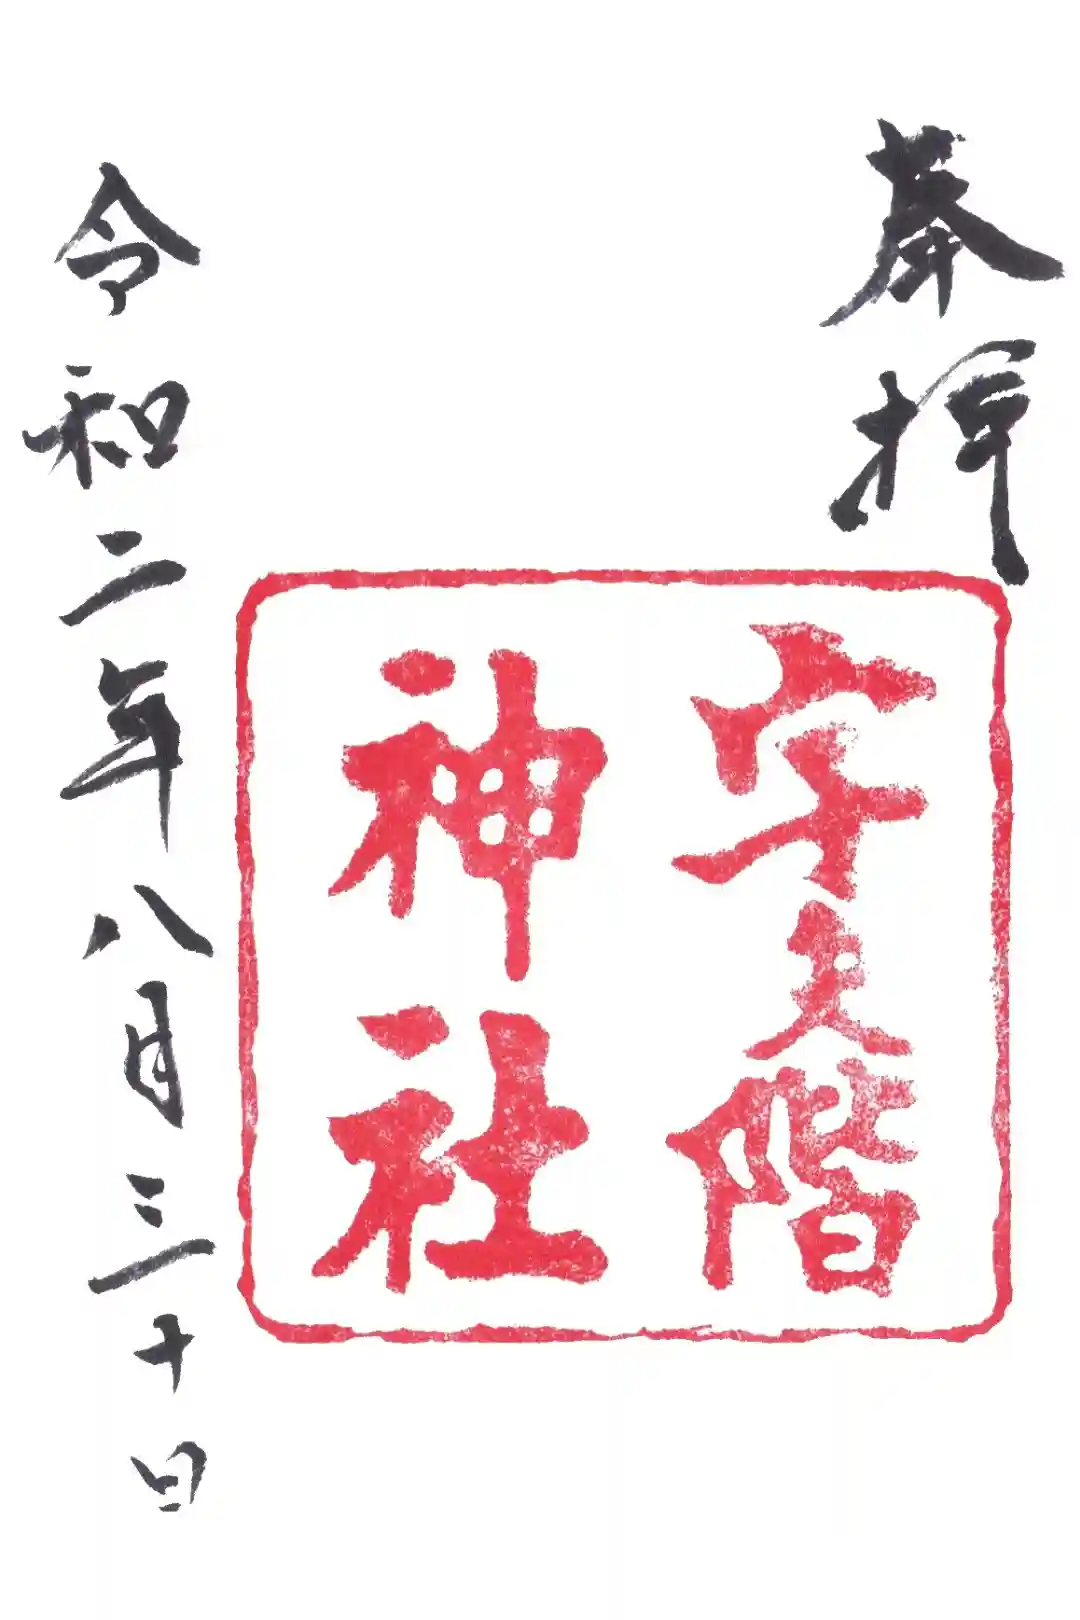 奉拝
宇夫階
神社
令和二年八月三十日